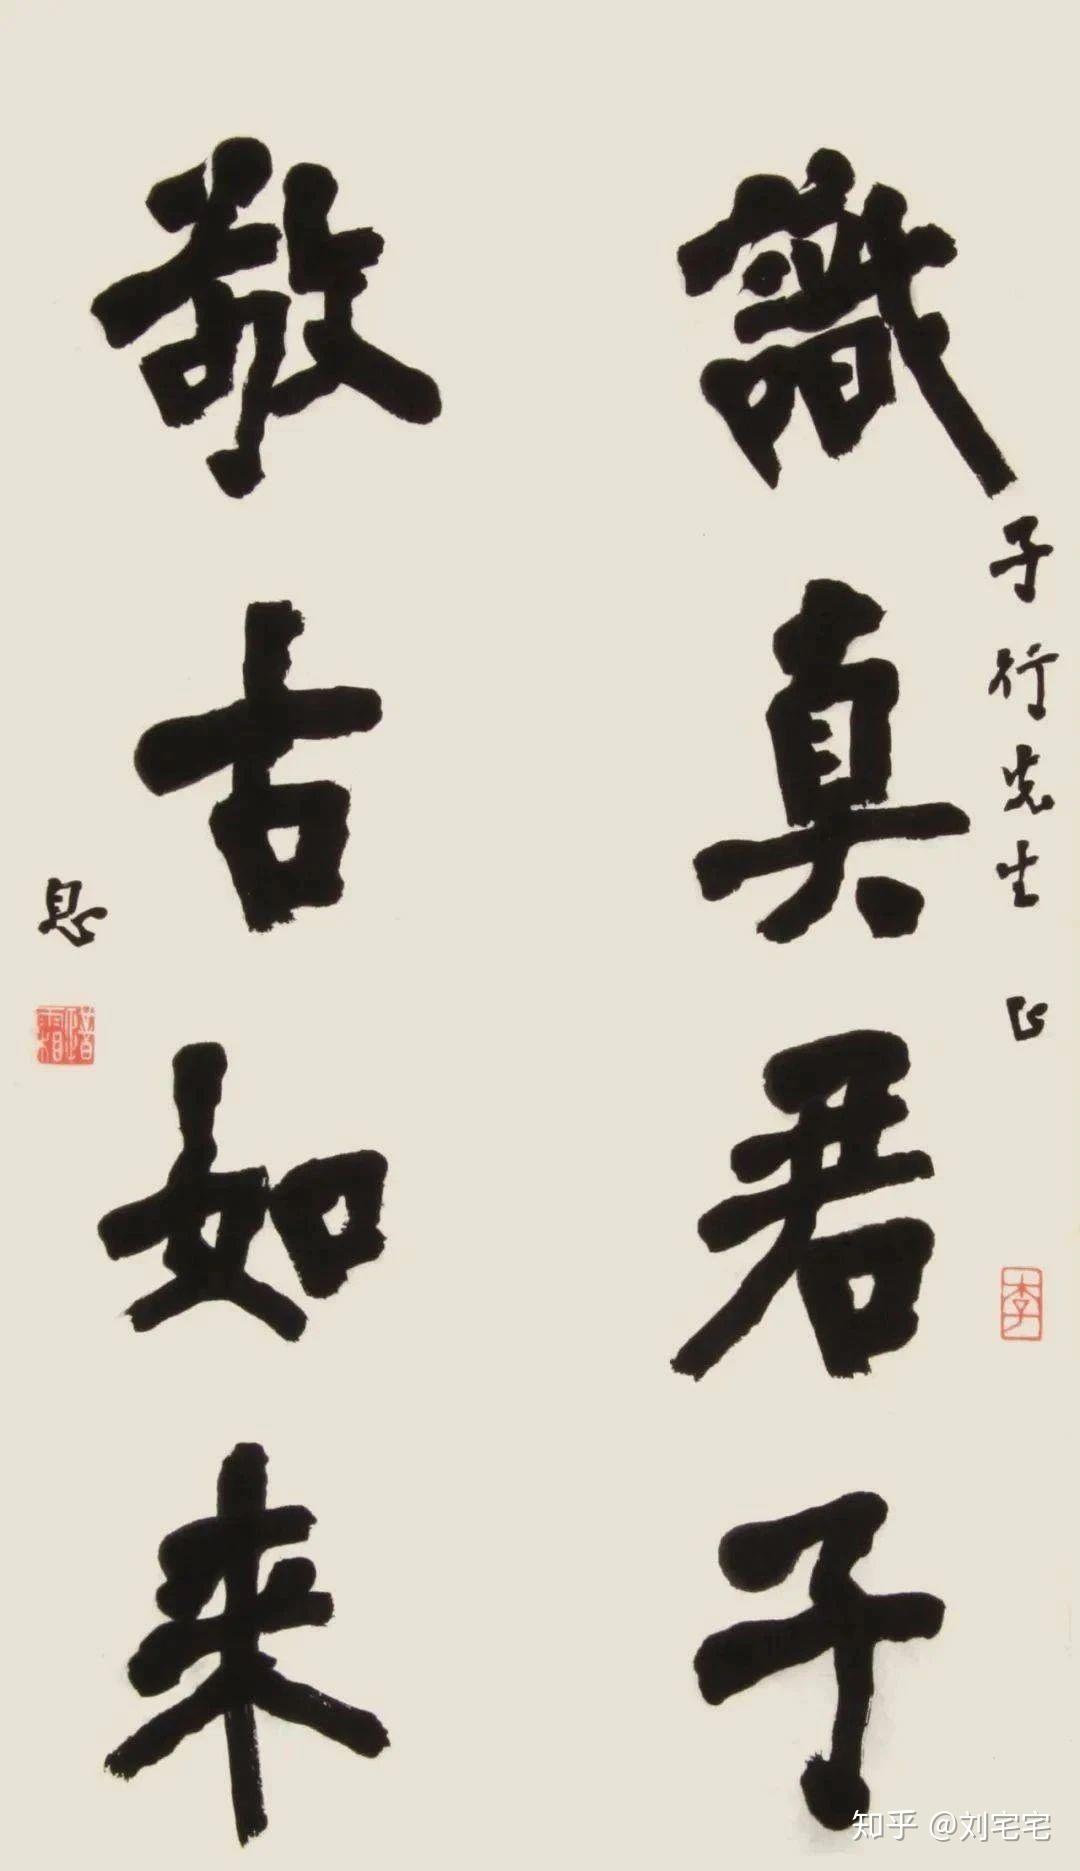 子行先生 正
李
識真君子
敬古如來
息
惜霜
知乎 @刘宅宅